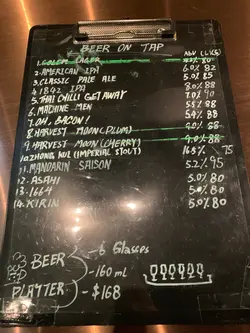 BEER ON TAP
ABV (HK$)
1. GOLDEN LAGER 80
2. AMERICAN IPA 6.0% 82
3. CLASSIC PALE ALE 5.0% 85
4. 1842 IPA 7.0% 88
5. THAI CHILLI GETAWAY 90
6. MACHINE MEN 5.5% 88
7. OH, BACON! 5.4% 88
8. HARVEST MOON (PLUM) 9.0% 88
9. HARVEST MOON (CHERRY) 9.0% 88
10. ZHONG KUI (IMPERIAL STOUT) 75
11. MANDARIN SAISON 5.2% 95
12. ASAHI 5.0% 80
13. 1664 5.0% 80
14. KIRIN 5.0% 80
BEER PLATTER
6 Glasses
-160 mL
- $168